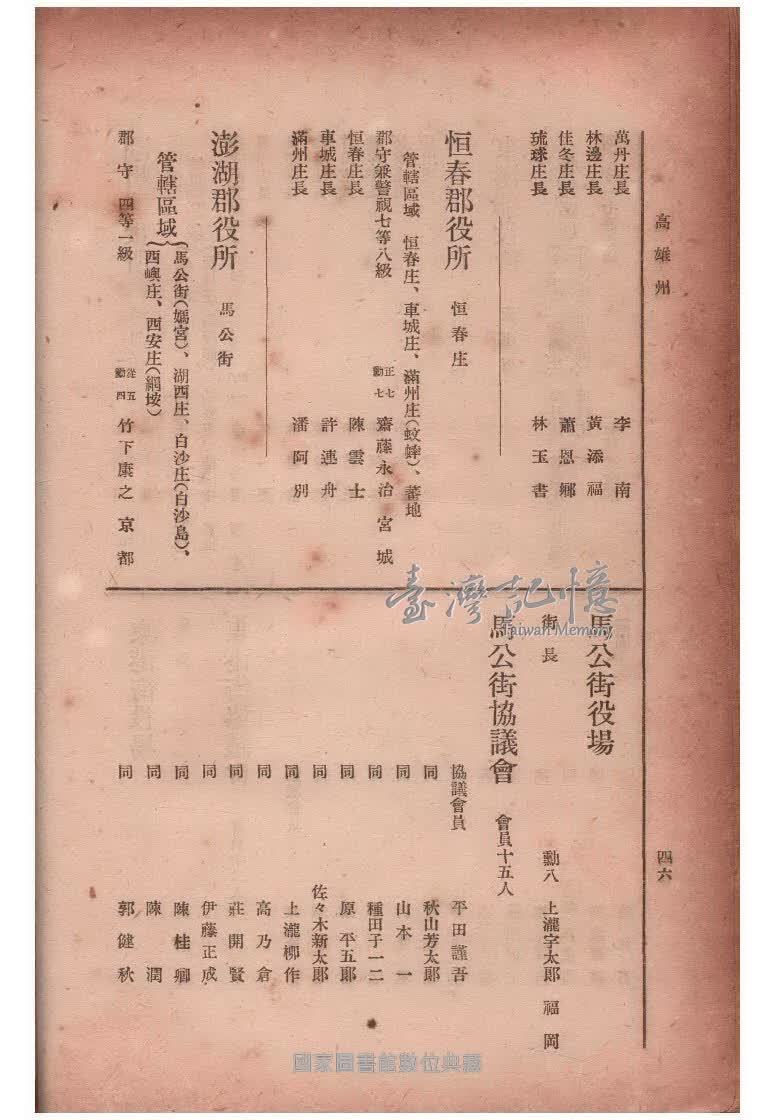 高雄州
四六
萬丹庄長 李南
林邊庄長 黃添福
佳冬庄長 蕭恩鄉
琉球庄長 林玉書
恒春郡役所 恒春庄
管轄區域 恒春庄、車城庄、滿州庄(蚊蟀)、蕃地
郡守兼警視七等八級 正七勳七 齋藤永治 宮城
恒春庄長 陳雲士
車城庄長 許連舟
滿州庄長 潘阿別
澎湖郡役所 馬公街
管轄區域{馬公街(媽宮)、湖西庄、白沙庄(白沙島)、
西嶼庄、西安庄(網垵)
郡守 四等一級 從五勳四 竹下康之 京都
馬公街役場
街長 勳八 上瀧宇太郎 福岡
馬公街協議會 會員十五人
協議會員 平田謹吾
同 秋山芳太郎
同 山本一
同 種田子一二
同 原平五郎
同 佐々木新太郎
同 上瀧柳作
同 高乃倉
同 莊開賢
同 伊藤正成
同 陳桂卿
同 陳潤
同 郭健秋
臺灣記憶
Taiwan Memory
國家圖書館數位典藏